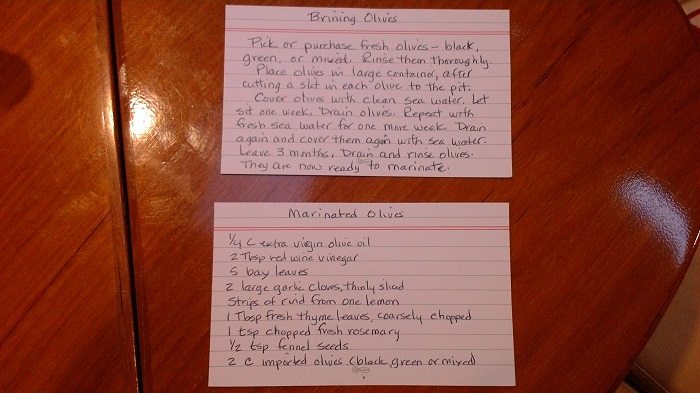 Brining Olives
Pick or purchase fresh olives - black,
green, or mixed. Rinse them thoroughly.
Place olives in large container, after
cutting a slit in each olive to the pit.
Cover olives with clean sea water. Let
sit one week. Drain olives. Repeat with
fresh sea water for one more week. Drain
again and cover them again with sea water.
Leave 3 months. Drain and rinse olives.
They are now ready to marinate.
Marinated Olives
1/4 C extra virgin olive oil
2 Tbsp red wine vinegar
5 bay leaves
2 large garlic cloves, thinly sliced
Strips of rind from one lemon
1 Tbsp fresh thyme leaves, coarsely chopped
1 tsp chopped fresh rosemary
1/2 tsp fennel seeds
2 C imported olives (black, green or mixed)